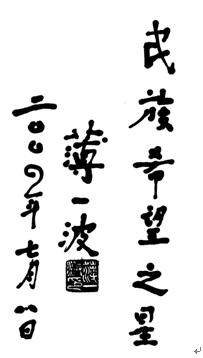 民族希望之星
薄一波
二〇〇〇年七月八日